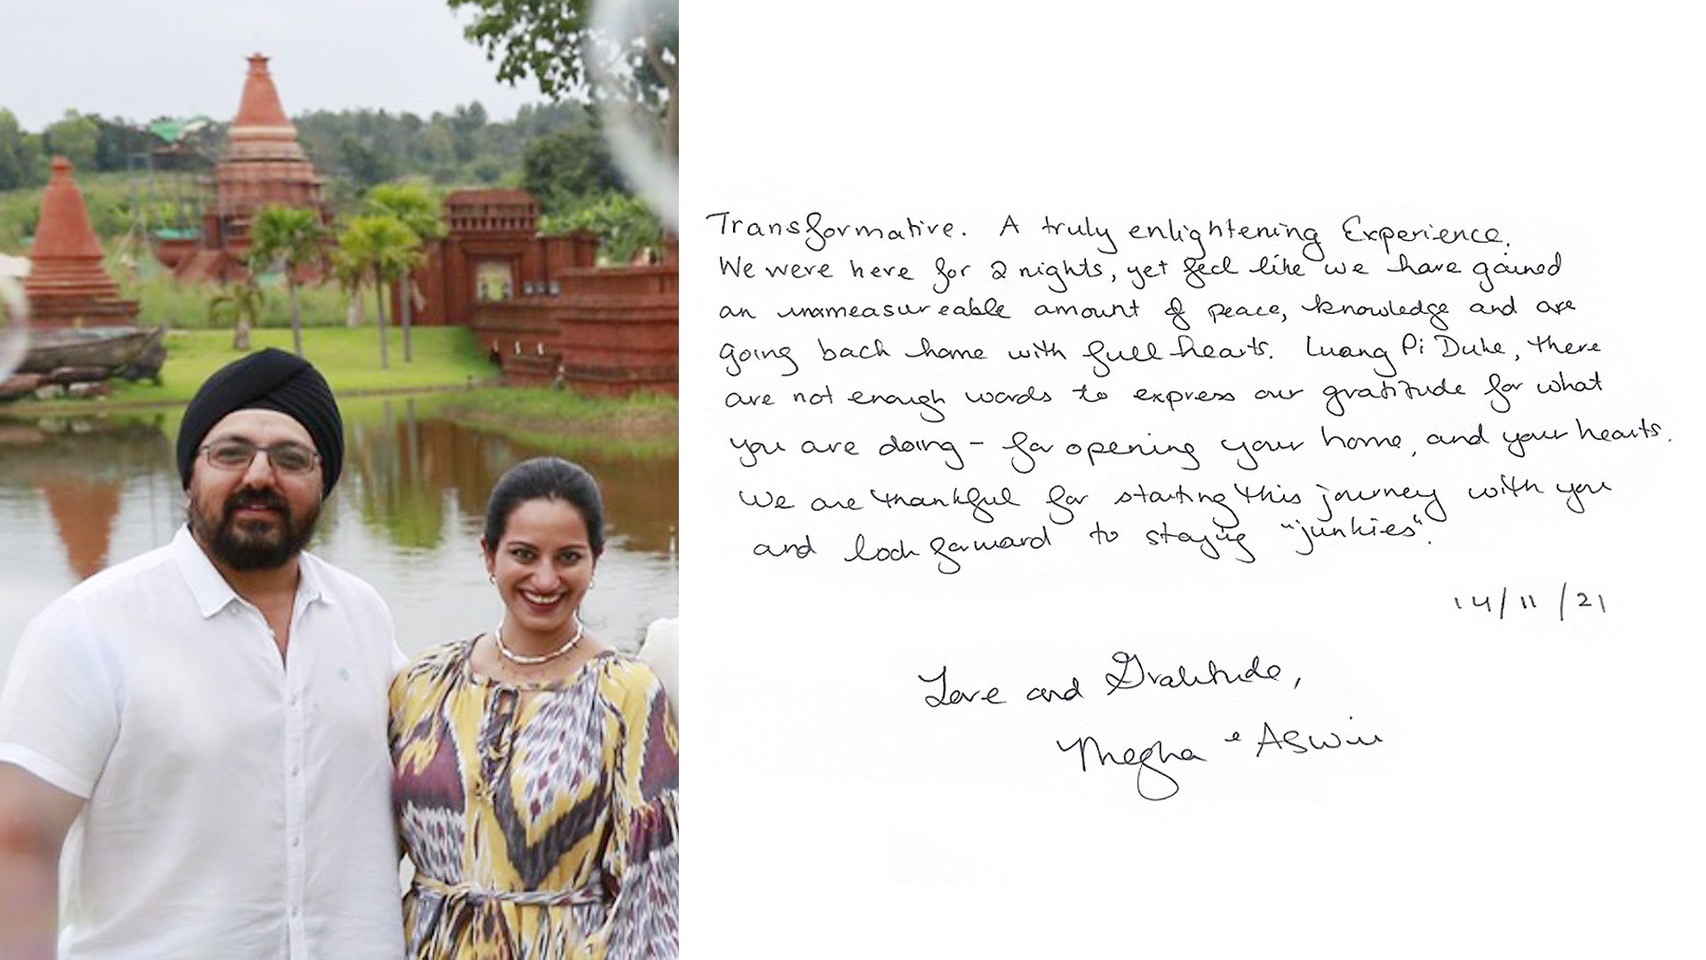 Transformative. A truly enlightening Experience.
We were here for 2 nights, yet feel like we have gained
an unmeasureable amount of peace, knowledge and are
going back home with full hearts. Luang Pi Duke, there
are not enough words to express our gratitude for what
you are doing - for opening your home, and your hearts.
We are thankful for starting this journey with you
and look forward to staying "junkies".
14/11/21
Love and Gratitude,
Megha & Aswin